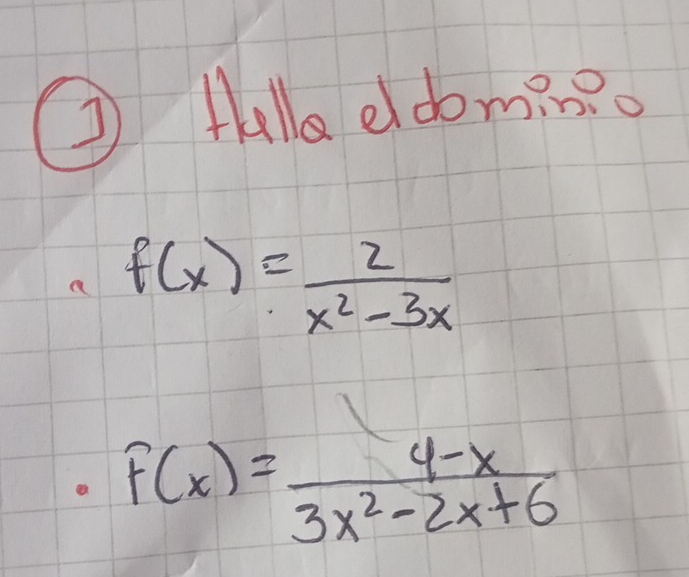 ① Halla el dominio
f(x) = 2/(x² - 3x)
f(x) = (4-x)/(3x² - 2x + 6)